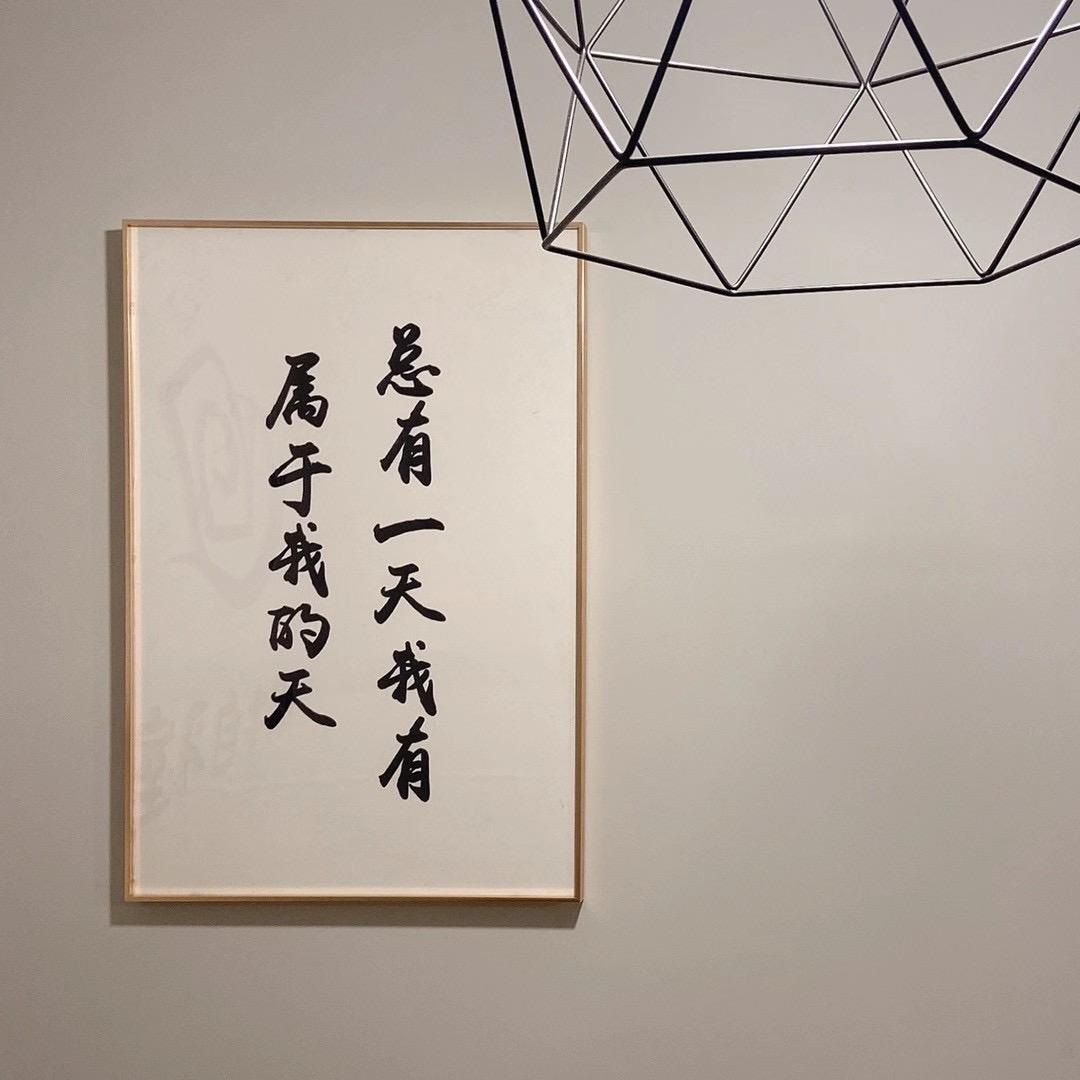 总有一天我有
属于我的天